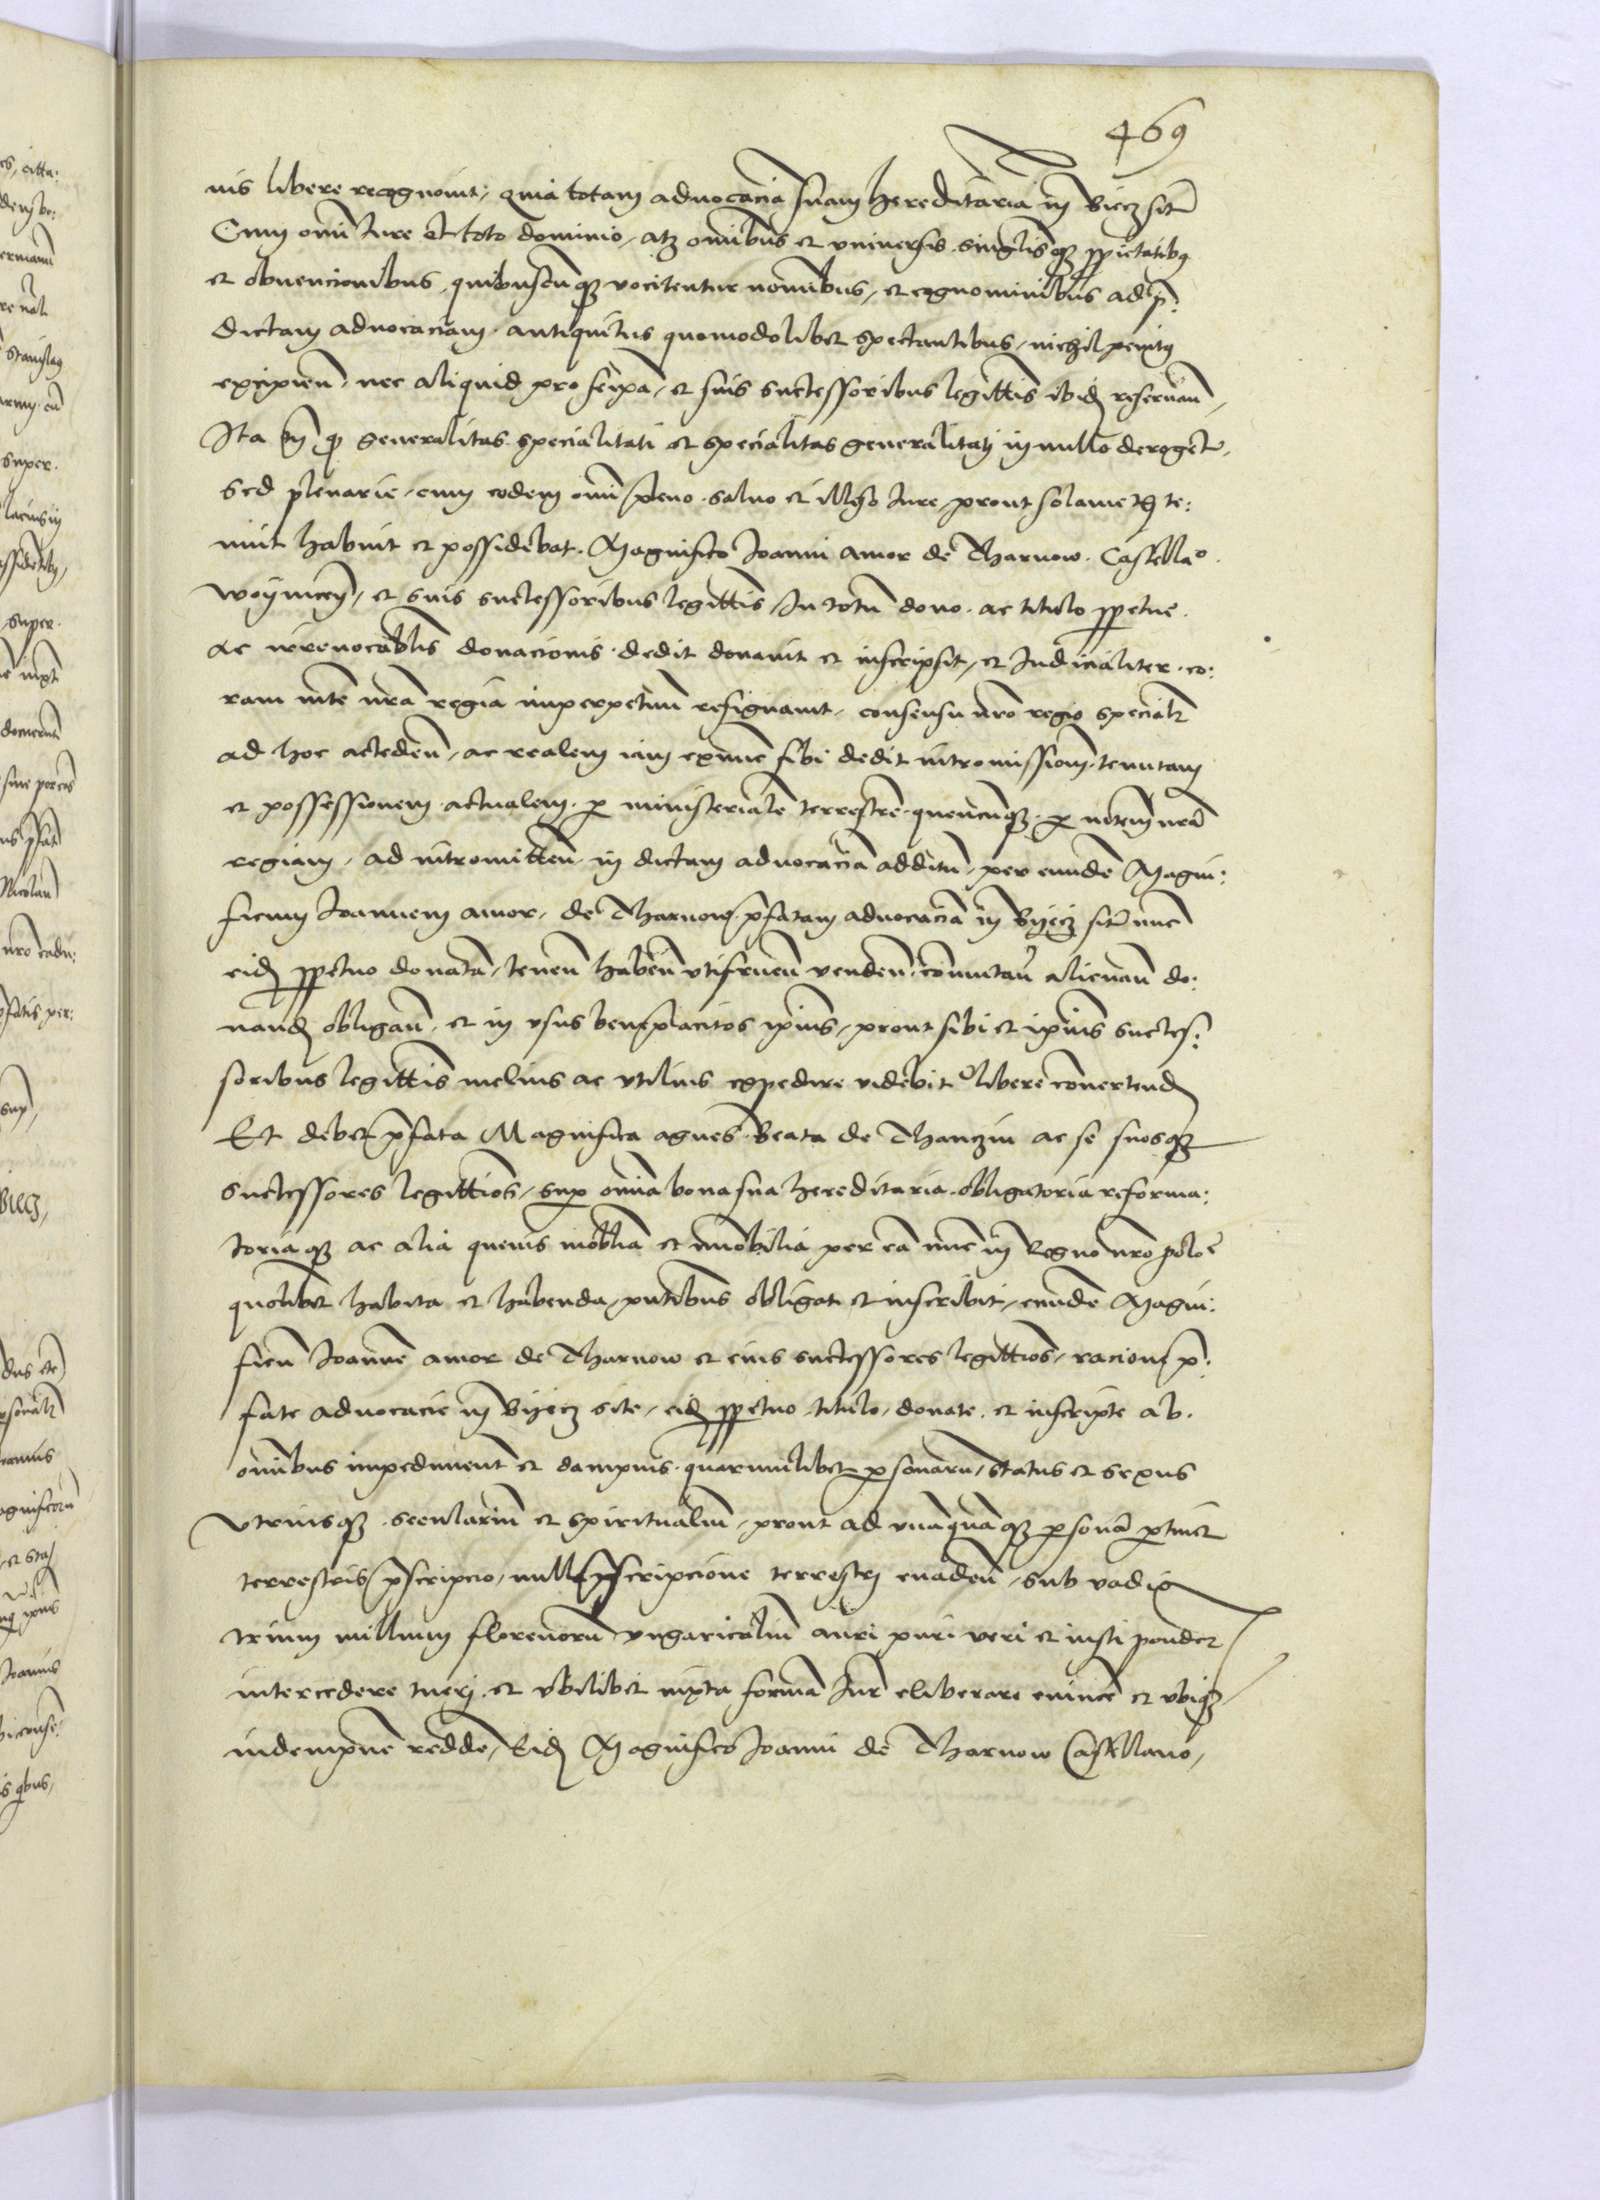 469
nis libere recognovit, quia totam advocaciã suam hereditariã in Biecz sitã
Cum omi Iure et toto dominio, atq omibus et universis singlisq ppietatibq
et obvencionibus quibuscunq vocitentur nomibus, et cognominibus ad p:
dictam advocaciam antiquitus quomodolibet spectantibus, nichil penitq
excipien, nec aliquid pro seipa, et suis successoribus legittis ibid reservan,
Ita tn q generalitas specialitati et specialitas generalitati in nullo deroget,
Sed plenarie, cum eodem omi pleno salvo et illeso Iure prout sola te:
nuit habuit et possidebat. Magnifico Ioanni Amor de Tharnow Castellao
woynicen, et suis successoribus legittis, In totu dono ac titulo ppetue
ac irrevocablis donacionis dedit donavit et inscripsit, et Iudicialiter co:
ram mte nra regia imperpetuu resignavit, consensu nro regio speciali
ad hoc acceden, ac realem iam exnuc sibi dedit intromissione, tenutam
et possessionem actualem p ministerialẽ terrestrẽ quencunq p mtem nrã
regiam, ad intromitten in dictam advocaciã additu, per eunde Magni:
ficum Ioannem Amor, de Tharnow pfatam advocaciã in Byecz sitã nuc
eid ppetuo donatã, tenen haben utifruen venden, comutan alienan do:
nand obligan, et in usus beneplacitos ipius, prout sibi et ipius succes:
soribus legittis melius ac utilius expedire videbitr libere convertend
Et debet pfata Magnifica Agnes Beata de Thanczin ac se suosq
successores legittios, sup omia bona sua hereditaria obligatoria reforma:
toriaq ac alia quevis mobilia et imobilia per eã nuc in Regno nro polo
quolibet habita et habenda, pntibus obligat et inscribit, eunde Magni:
ficu Ioannẽ Amor de Tharnow et eius successores legittios, racione p:
fate advocacie in Byecz site, eid ppetuo titulo, donate et inscripte ab
omibus impediment et dampnis quarumlibet psonaru, status et sexus
utriusq seculariu et spiritualiu, prout ad unaquaq psonã ptinet
terrestris pscripcio, nulla pscripcione terrestri evaden, sub vadio
trium millium florenoru ungaricaliu auri puri veri et iusti ponder
intercedere tueri et ubilibet iuxta formã Iur eliberare evince et ubiq
indempnẽ redde, Eid Magnifico Ioanni de Tharnow Castellano,